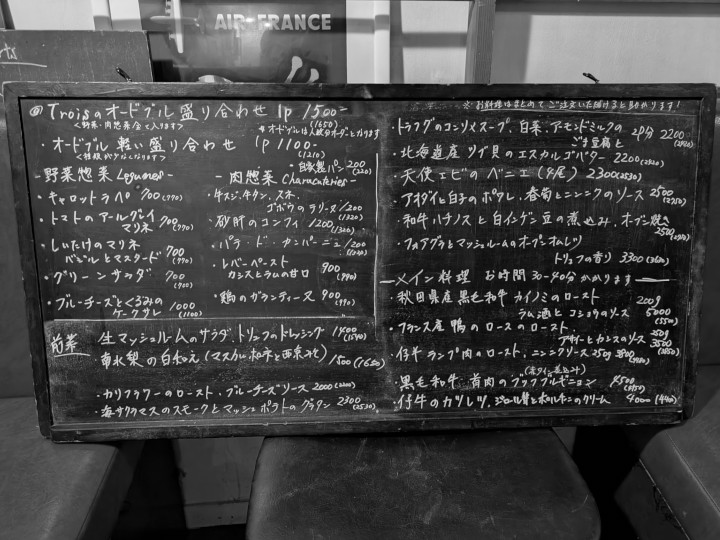 AIR FRANCE
◎ Troisのオードブル盛り合わせ 1p 1500-
(1650)
<野菜・肉惣菜全て入ります>
※オードブルは人数分オーダーとなります
・オードブル 軽い盛り合わせ 1p 1100-
(1210)
<種類が少なくなります>
自家製パン 200
(220)
-野菜惣菜 Legumes-
・キャロットラペ 700(770)
・トマトのアールグレイ
マリネ 700(770)
・しいたけのマリネ
バジルとマスタード 700
(770)
・グリーンサラダ 700
・ブルーチーズとくるみの
ケークサレ 1000
(1100)
-肉惣菜 Charcuteries-
・牛スジ、牛タン、
ゴボウのテリーヌ 1200
(1320)
・砂肝のコンフィ 1200
(1320)
・パテ・ド・カンパーニュ 1200
(1320)
・レバーペースト
カシスとラムの甘口 900
(990)
・鶏のガランティーヌ 900
(990)
前菜
生マッシュルームのサラダ、トリュフのドレッシング 1400
(1540)
南水梨の白和え(マスカルポーネと西京みそ) 1500(1650)
・カリフラワーのロースト、ブルーチーズソース 2000(2200)
・海サクラマスのスモークとマッシュポテトのグラタン 2300
(2530)
※お料理はまとめてご注文いただけると助かります!
・トラフグのコンソメスープ、白菜、アーモンドミルクの
ごま豆腐と 2200
・北海道産 ツブ貝のエスカルゴバター 2200
・天使エビのベニエ(4尾) 2300(2530)
・アオダイと白子のポワレ、春菊とニンニクのソース 2500
・和牛ハチノスと白インゲン豆の煮込み、オーブン焼き
・フォアグラとマッシュルームのオープンオムレツ
トリュフの香り 3300
-メイン料理 お時間30-40分かかります-
・秋田県産黒毛和牛 カイノミのロースト 200g
ラム酒とコショウのソース 5000
・フランス産 鴨のロースのロースト、 250g
カシスのソース 3500
・仔牛ランプ肉のロースト、ニンニクソース 250g
(赤ワイン煮込み)
・黒毛和牛 首肉のブッフブルギニヨン 4500
・仔牛のカツレツ、ジロール茸とポルチーニのクリーム 4000(4400)